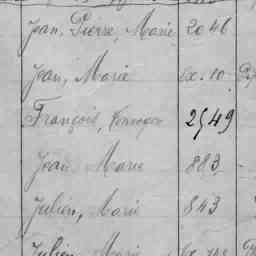 Jean, Pierre, Marie 2046
Jean, Marie
François, 2549
Jean Marie 883
Julien, Marie 843
Julien, Marie